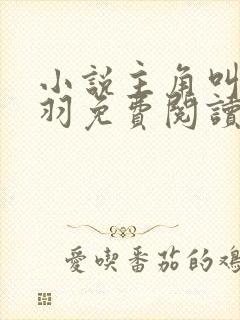 小說主角叫
羽免費閱讀
愛喫番茄的鴻